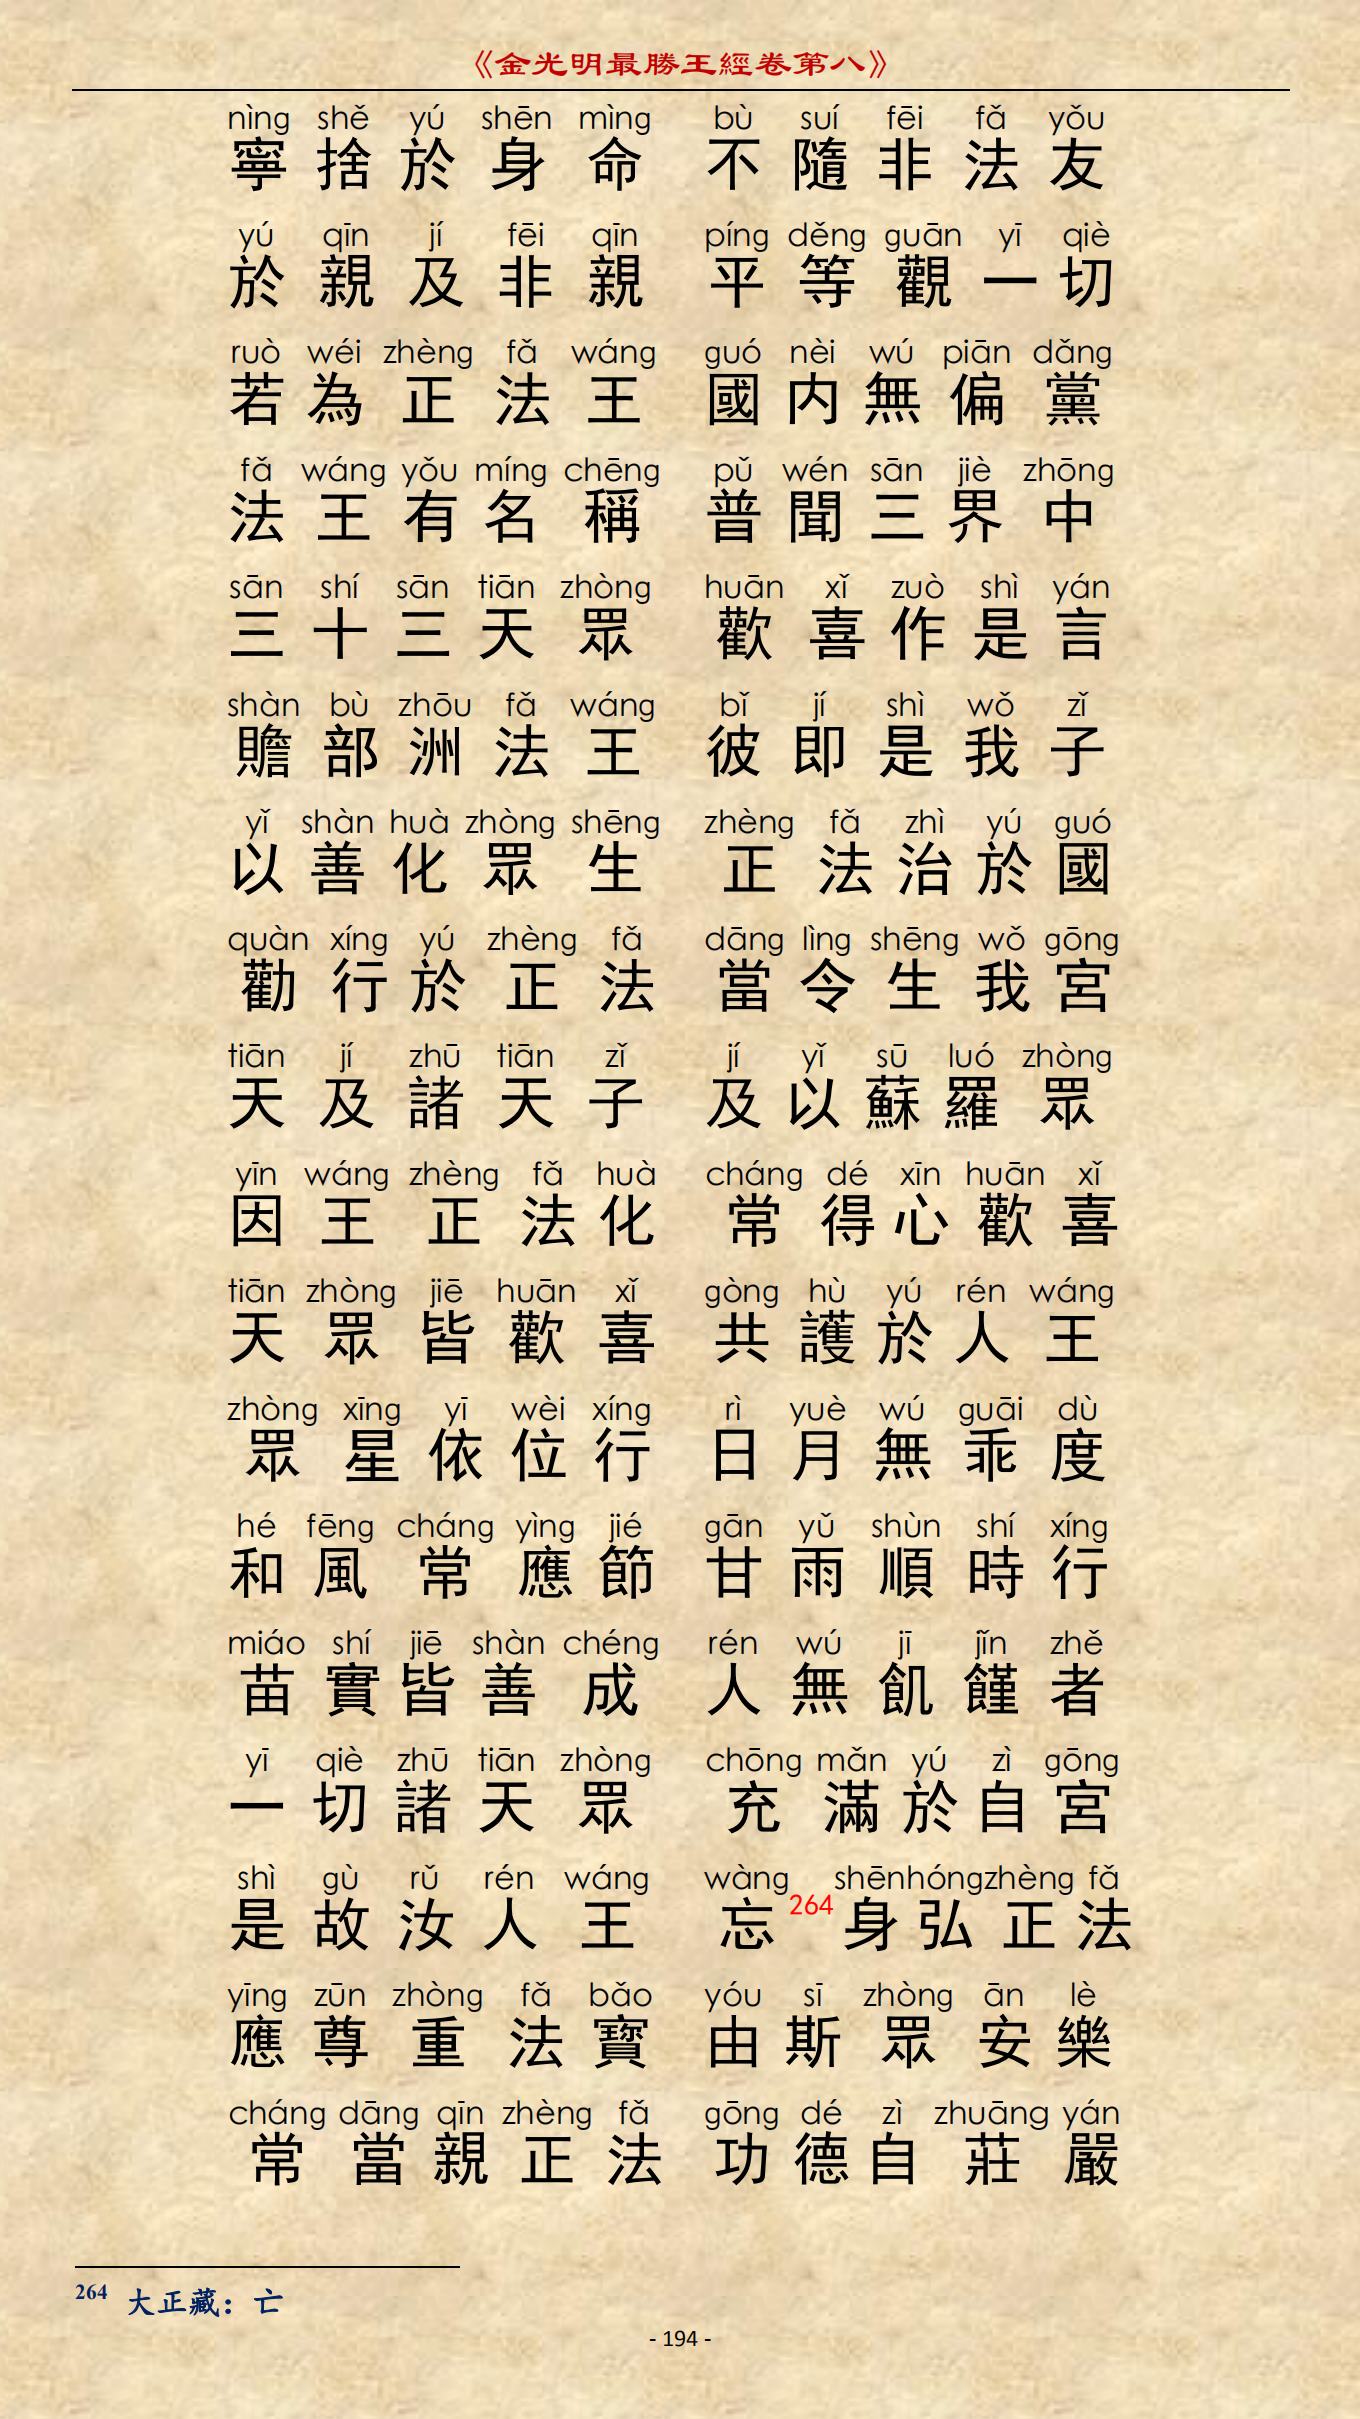 《金光明最勝王經卷第八》
nìng shě yú shēn mìng bù suí fēi fǎ yǒu
寧捨於身命 不隨非法友
yú qīn jí fēi qīn píng děng guān yī qiè
於親及非親 平等觀一切
ruò wéi zhèng fǎ wáng guó nèi wú piān dǎng
若為正法王 國内無偏黨
fǎ wáng yǒu míng chēng pǔ wén sān jiè zhōng
法王有名稱 普聞三界中
sān shí sān tiān zhòng huān xǐ zuò shì yán
三十三天眾 歡喜作是言
shàn bù zhōu fǎ wáng bǐ jí shì wǒ zǐ
贍部洲法王 彼即是我子
yǐ shàn huà zhòng shēng zhèng fǎ zhì yú guó
以善化眾生 正法治於國
quàn xíng yú zhèng fǎ dāng lìng shēng wǒ gōng
勸行於正法 當令生我宮
tiān jí zhū tiān zǐ jí yǐ sū luó zhòng
天及諸天子 及以蘇羅眾
yīn wáng zhèng fǎ huà cháng dé xīn huān xǐ
因王正法化 常得心歡喜
tiān zhòng jiē huān xǐ gòng hù yú rén wáng
天眾皆歡喜 共護於人王
zhòng xīng yī wèi xíng rì yuè wú guāi dù
眾星依位行 日月無乖度
hé fēng cháng yìng jié gān yǔ shùn shí xíng
和風常應節 甘雨順時行
miáo shí jiē shàn chéng rén wú jī jǐn zhě
苗實皆善成 人無飢饉者
yī qiè zhū tiān zhòng chōng mǎn yú zì gōng
一切諸天眾 充滿於自宮
shì gù rǔ rén wáng wàng shēn hóng zhèng fǎ
是故汝人王 忘264身弘正法
yīng zūn zhòng fǎ bǎo yóu sī zhòng ān lè
應尊重法寶 由斯眾安樂
cháng dāng qīn zhèng fǎ gōng dé zì zhuāng yán
常當親正法 功德自莊嚴
264 大正藏：亡
- 194 -